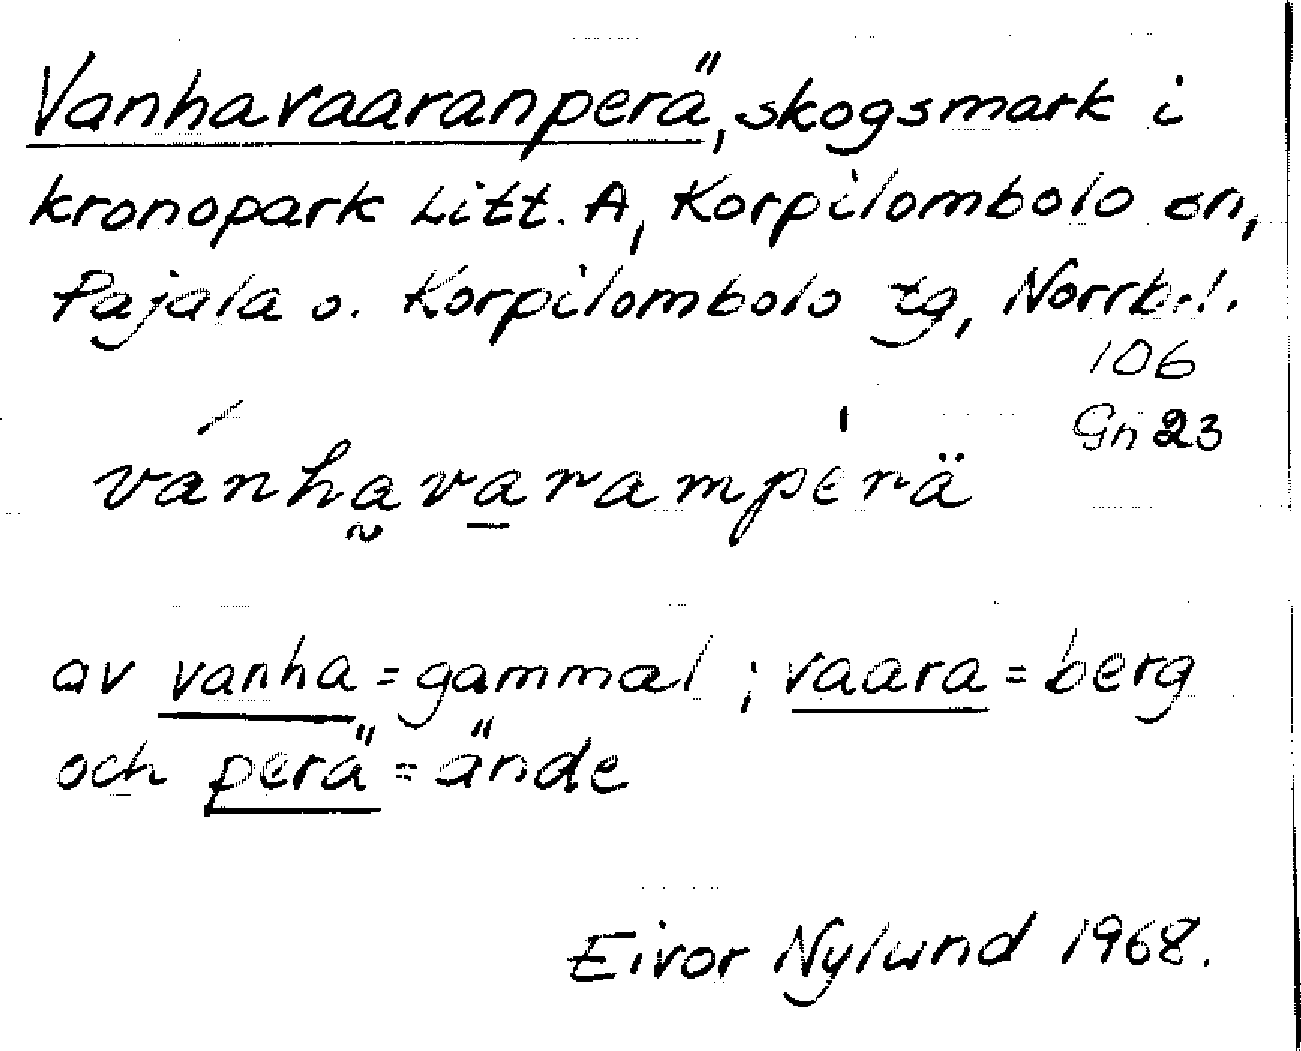 Vanhavaaranperä, skogsmark i
kronopark Litt. A, Korpilombolo sn,
Pajala o. Korpilombolo tg, Norrb.l.
106
Gn 23
vánha̰va̱rampèrä
av vanha = gammal ; vaara = berg
och perä = ände
Eivor Nylund 1968.